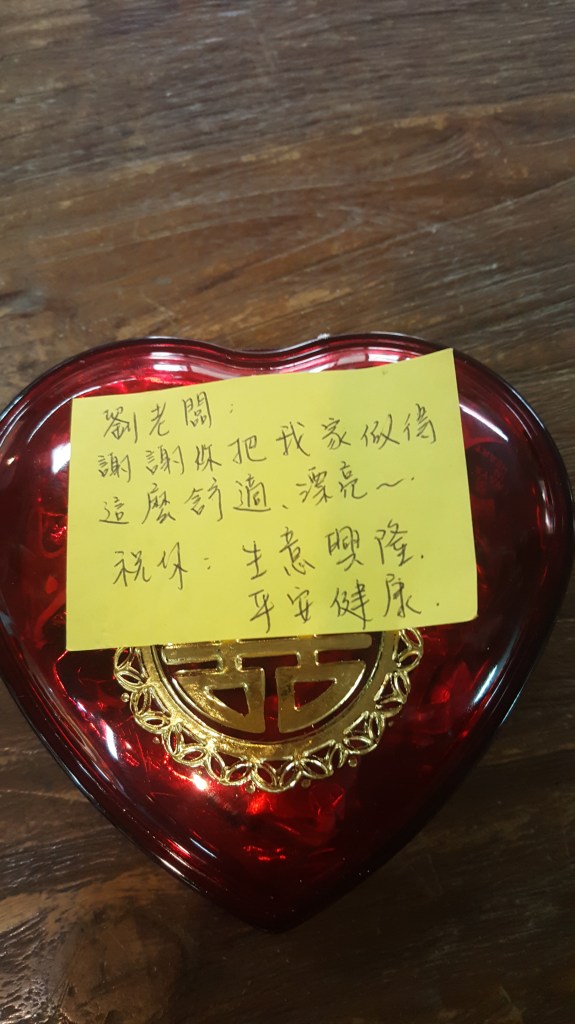 劉老闆:
謝謝你把我家做得
這麼舒適、漂亮~.
祝你: 生意興隆.
平安健康.
囍